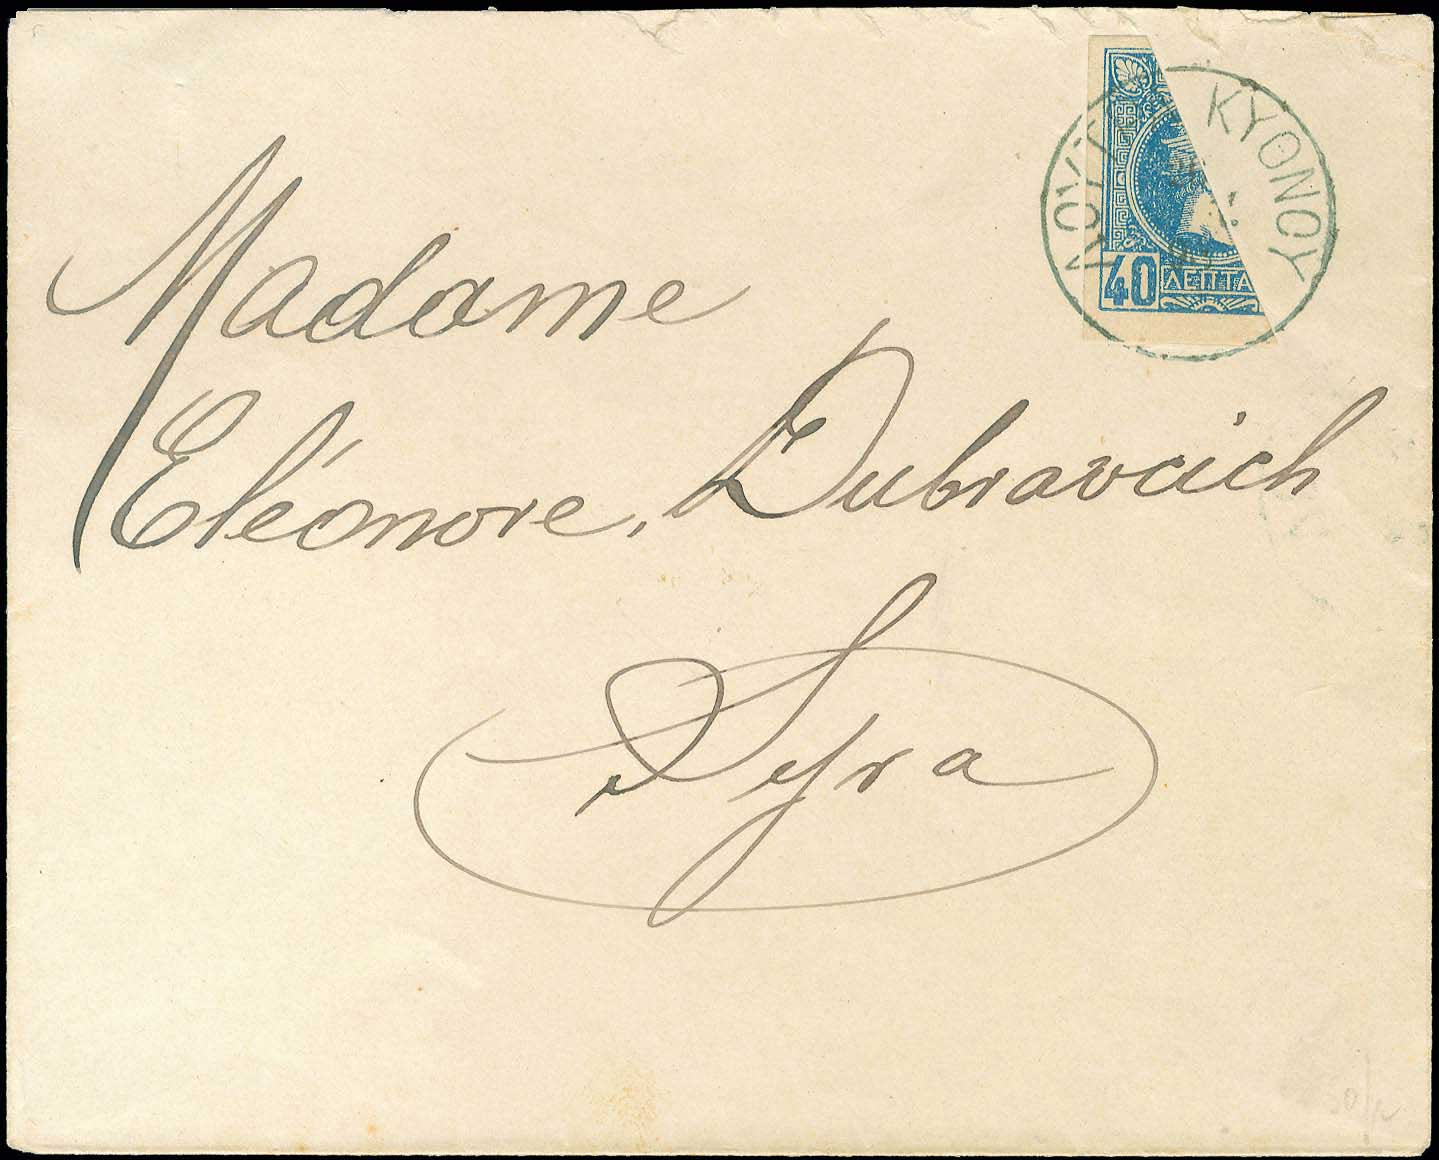 ΛΟΥΤΡ ΚΥΘΝΟΥ
40 ΛΕΠΤΑ
Madame
Eléonore, Dubravcich
Syra